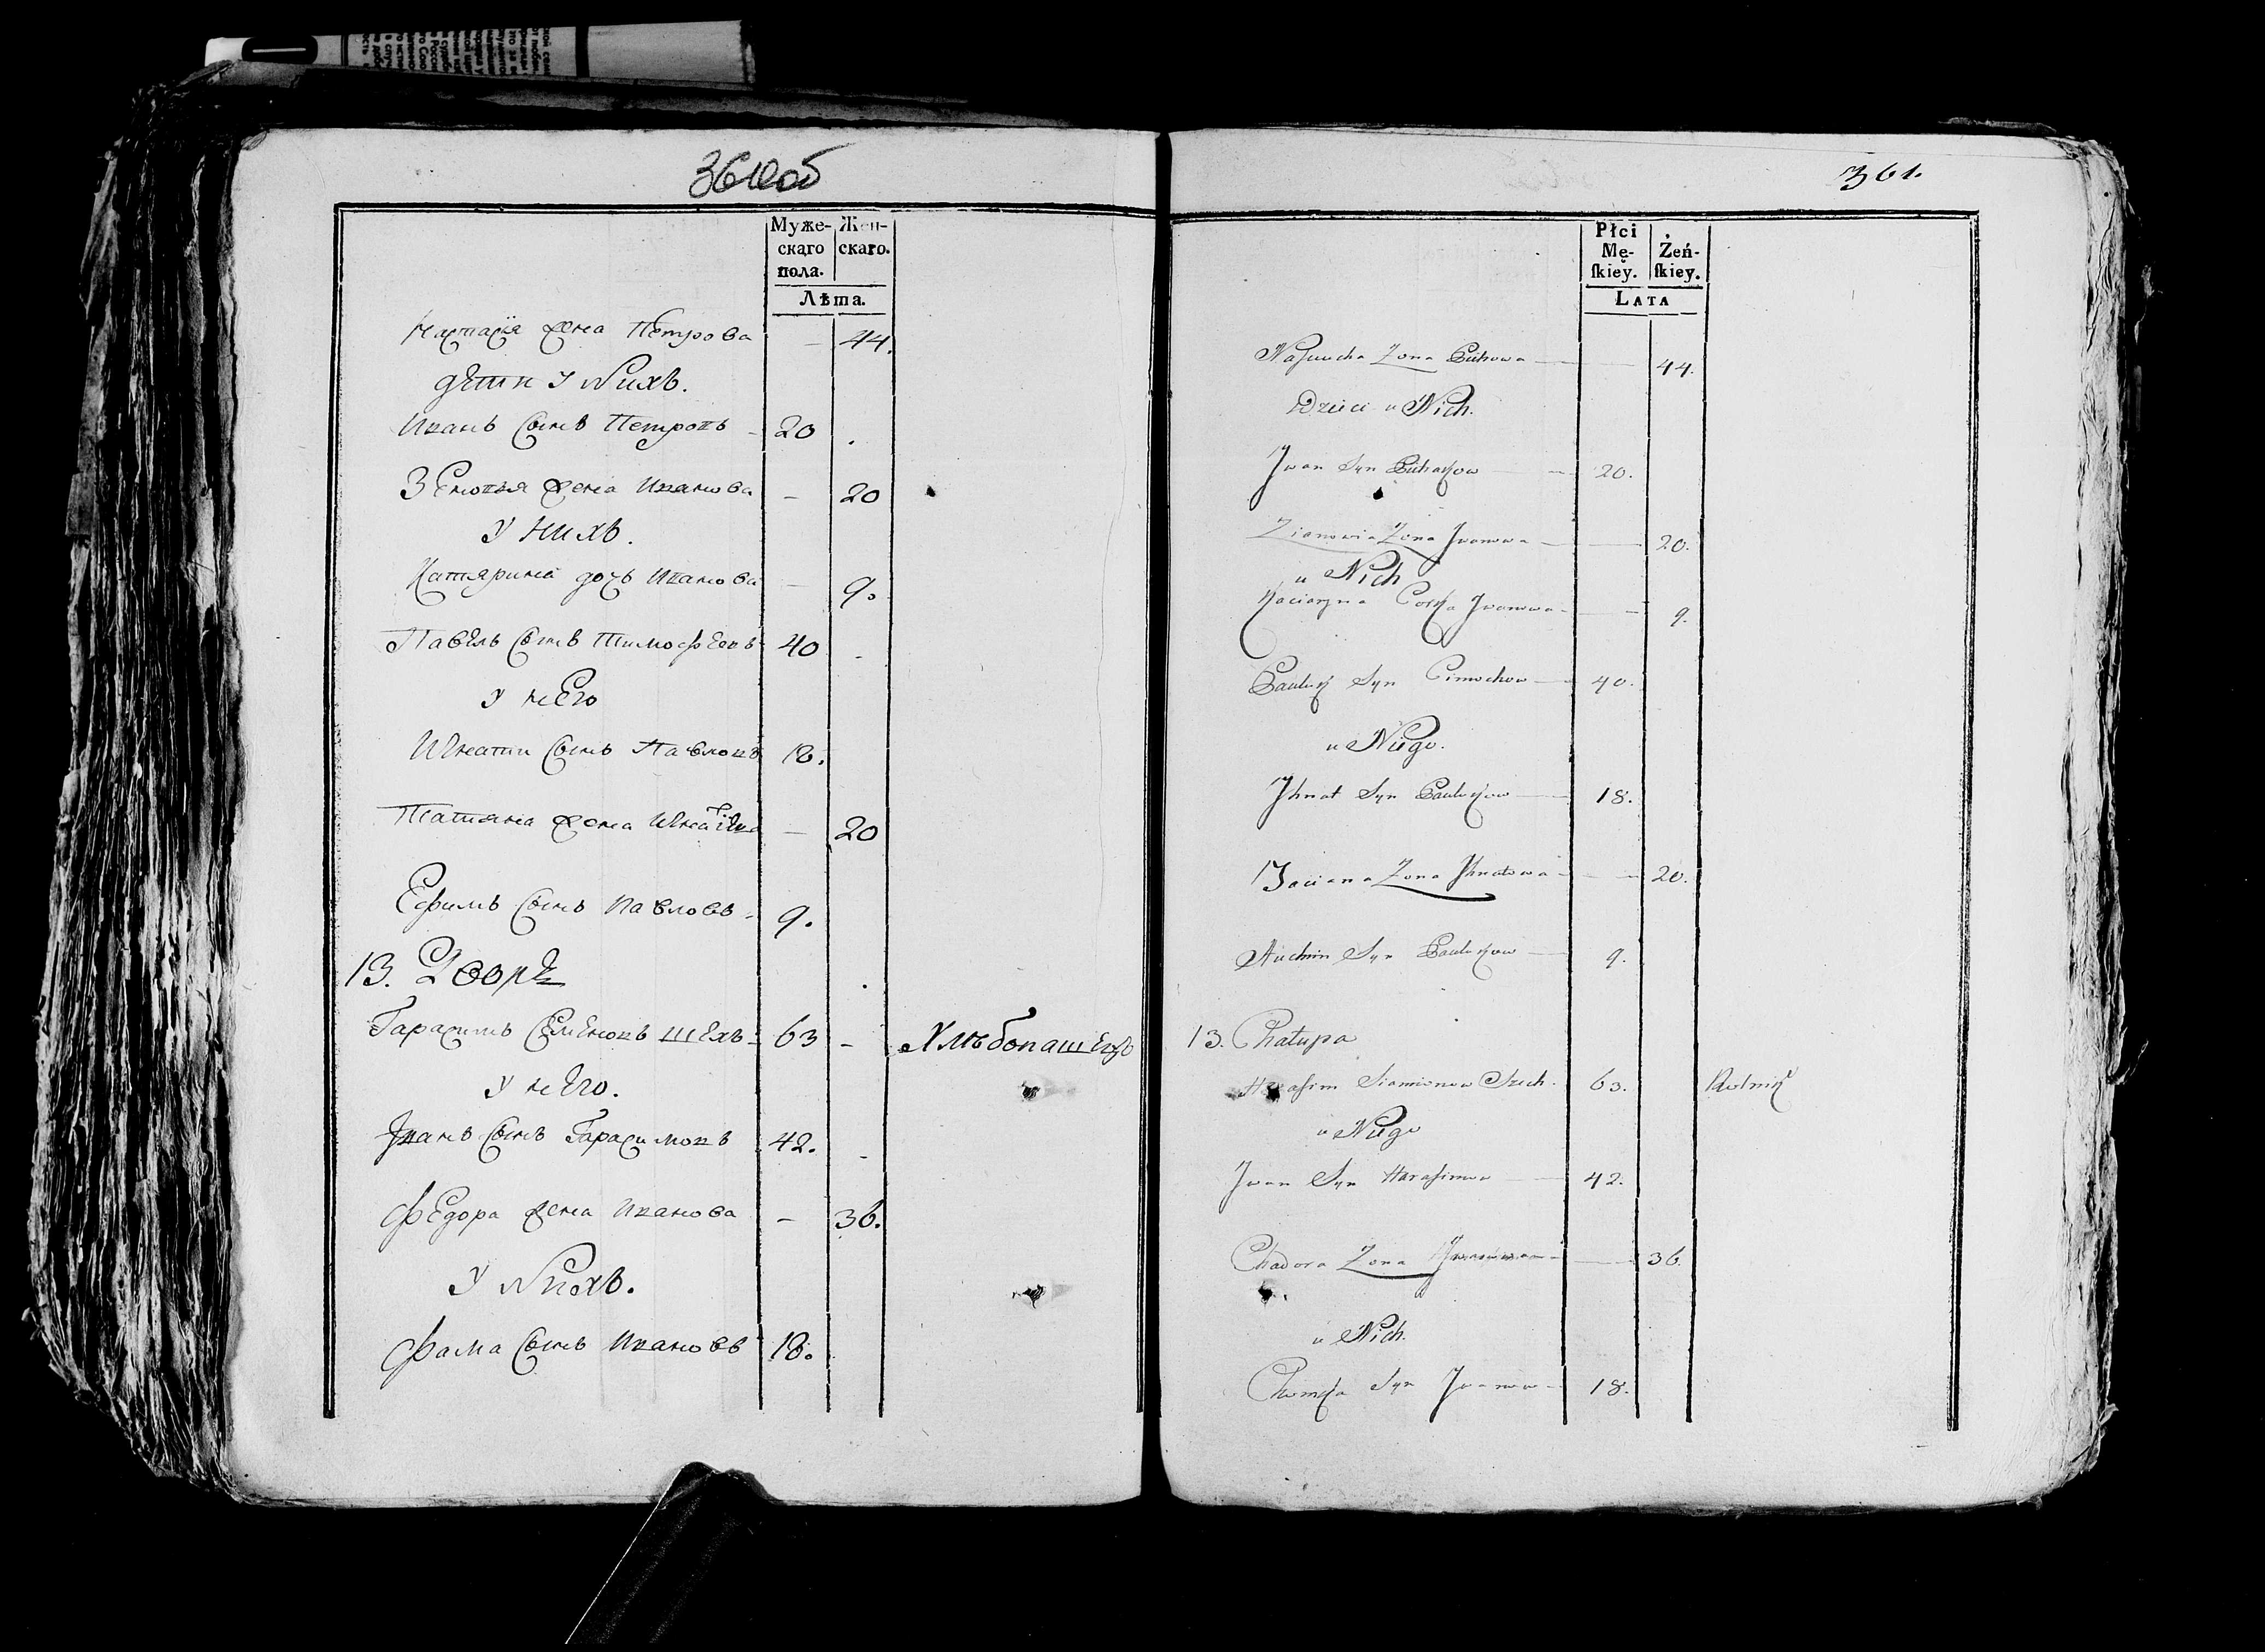 360об
Муже- Жен-
скаго скаго.
пола.
Лѣта.
Настасія жена Петрова — 44.
дети У Нихъ.
Иванъ Сынъ Петровъ 20
Зеновья жена Иванова — 20
У нихъ.
Катярина дочь Иванова — 9.
Павелъ Сынъ Тимофеевъ 40
У него
Игнатъ Сынъ Павловъ 18.
Татяна жена — 20
Ефимъ Сынъ Павловъ 9.
13. Дворъ
Гарасимъ Семеновъ Шехъ 63 — Хлѣбопашецъ
У него.
Иванъ Сынъ Гарасимовъ 42.
Федора жена Иванова — 36.
У Нихъ.
Фама Сынъ Ивановъ 18.
361.
Płci Żeń-
Mę- ſkiey.
ſkiey.
LATA
Zona 44.
Dzieci u Nich.
Jwan Syn 20.
Zianowia Zona Jwanowa — 20.
u Nich
Kaciaryna Corka Jwanowa — 9.
Pauluk Syn Cimochow 40.
u Niego.
Jhnat Syn Paulukow 18.
Taciana Zona Jhnatowa — 20.
Auchim Syn Paulukow 9.
13. Chałupa
Harasim Siamionow Szech. 63. Rolnik
u Niego
Jwan Syn Harasimow 42.
Chadora Zona Jwanowa — 36.
u Nich.
Chomka Syn Jwanow 18.